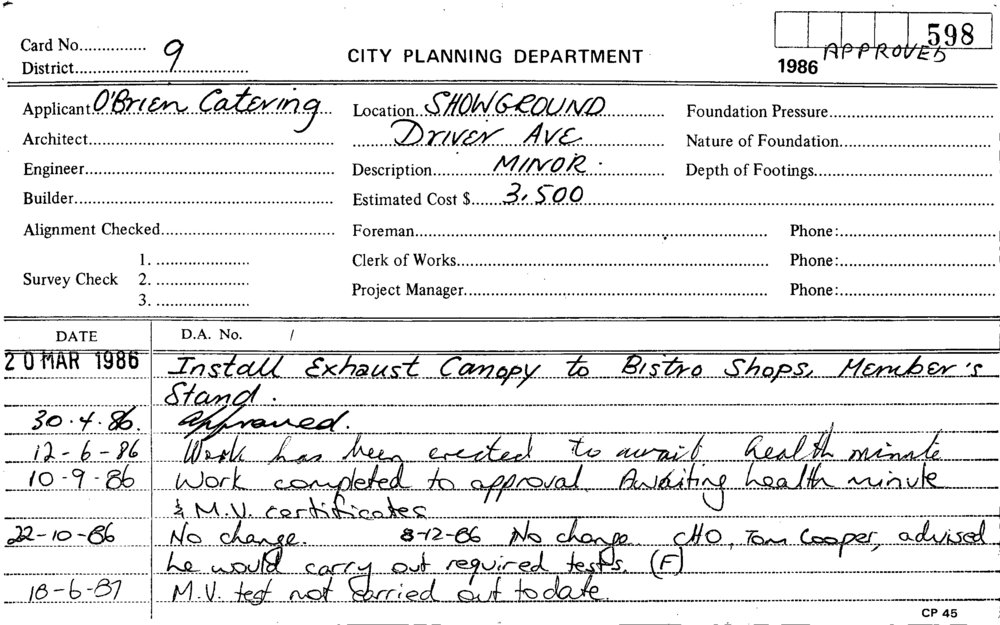 Card No............... 9 598
District..................... CITY PLANNING DEPARTMENT 1986 APPROVED
Applicant O'Brien Catering Location SHOWGROUND Foundation Pressure
Architect Driver Ave Nature of Foundation
Engineer Description MINOR. Depth of Footings
Builder Estimated Cost $ 3,500
Alignment Checked Foreman Phone:
1. Clerk of Works Phone:
Survey Check 2.
3. Project Manager Phone:
DATE D.A. No. /
20 MAR 1986 Install Exhaust Canopy to Bistro Shops, Member's
Stand.
30.4.86. approved.
12-6-86 Work has been erected to await health minute
10-9-86 Work completed to approval. Awaiting health minute
& M.V. certificates
22-10-86 No change. 8-12-86 No change CHO, Tom Cooper, advised
he would carry out required tests. (F)
18-6-87 M.V. test not carried out to date.
CP 45